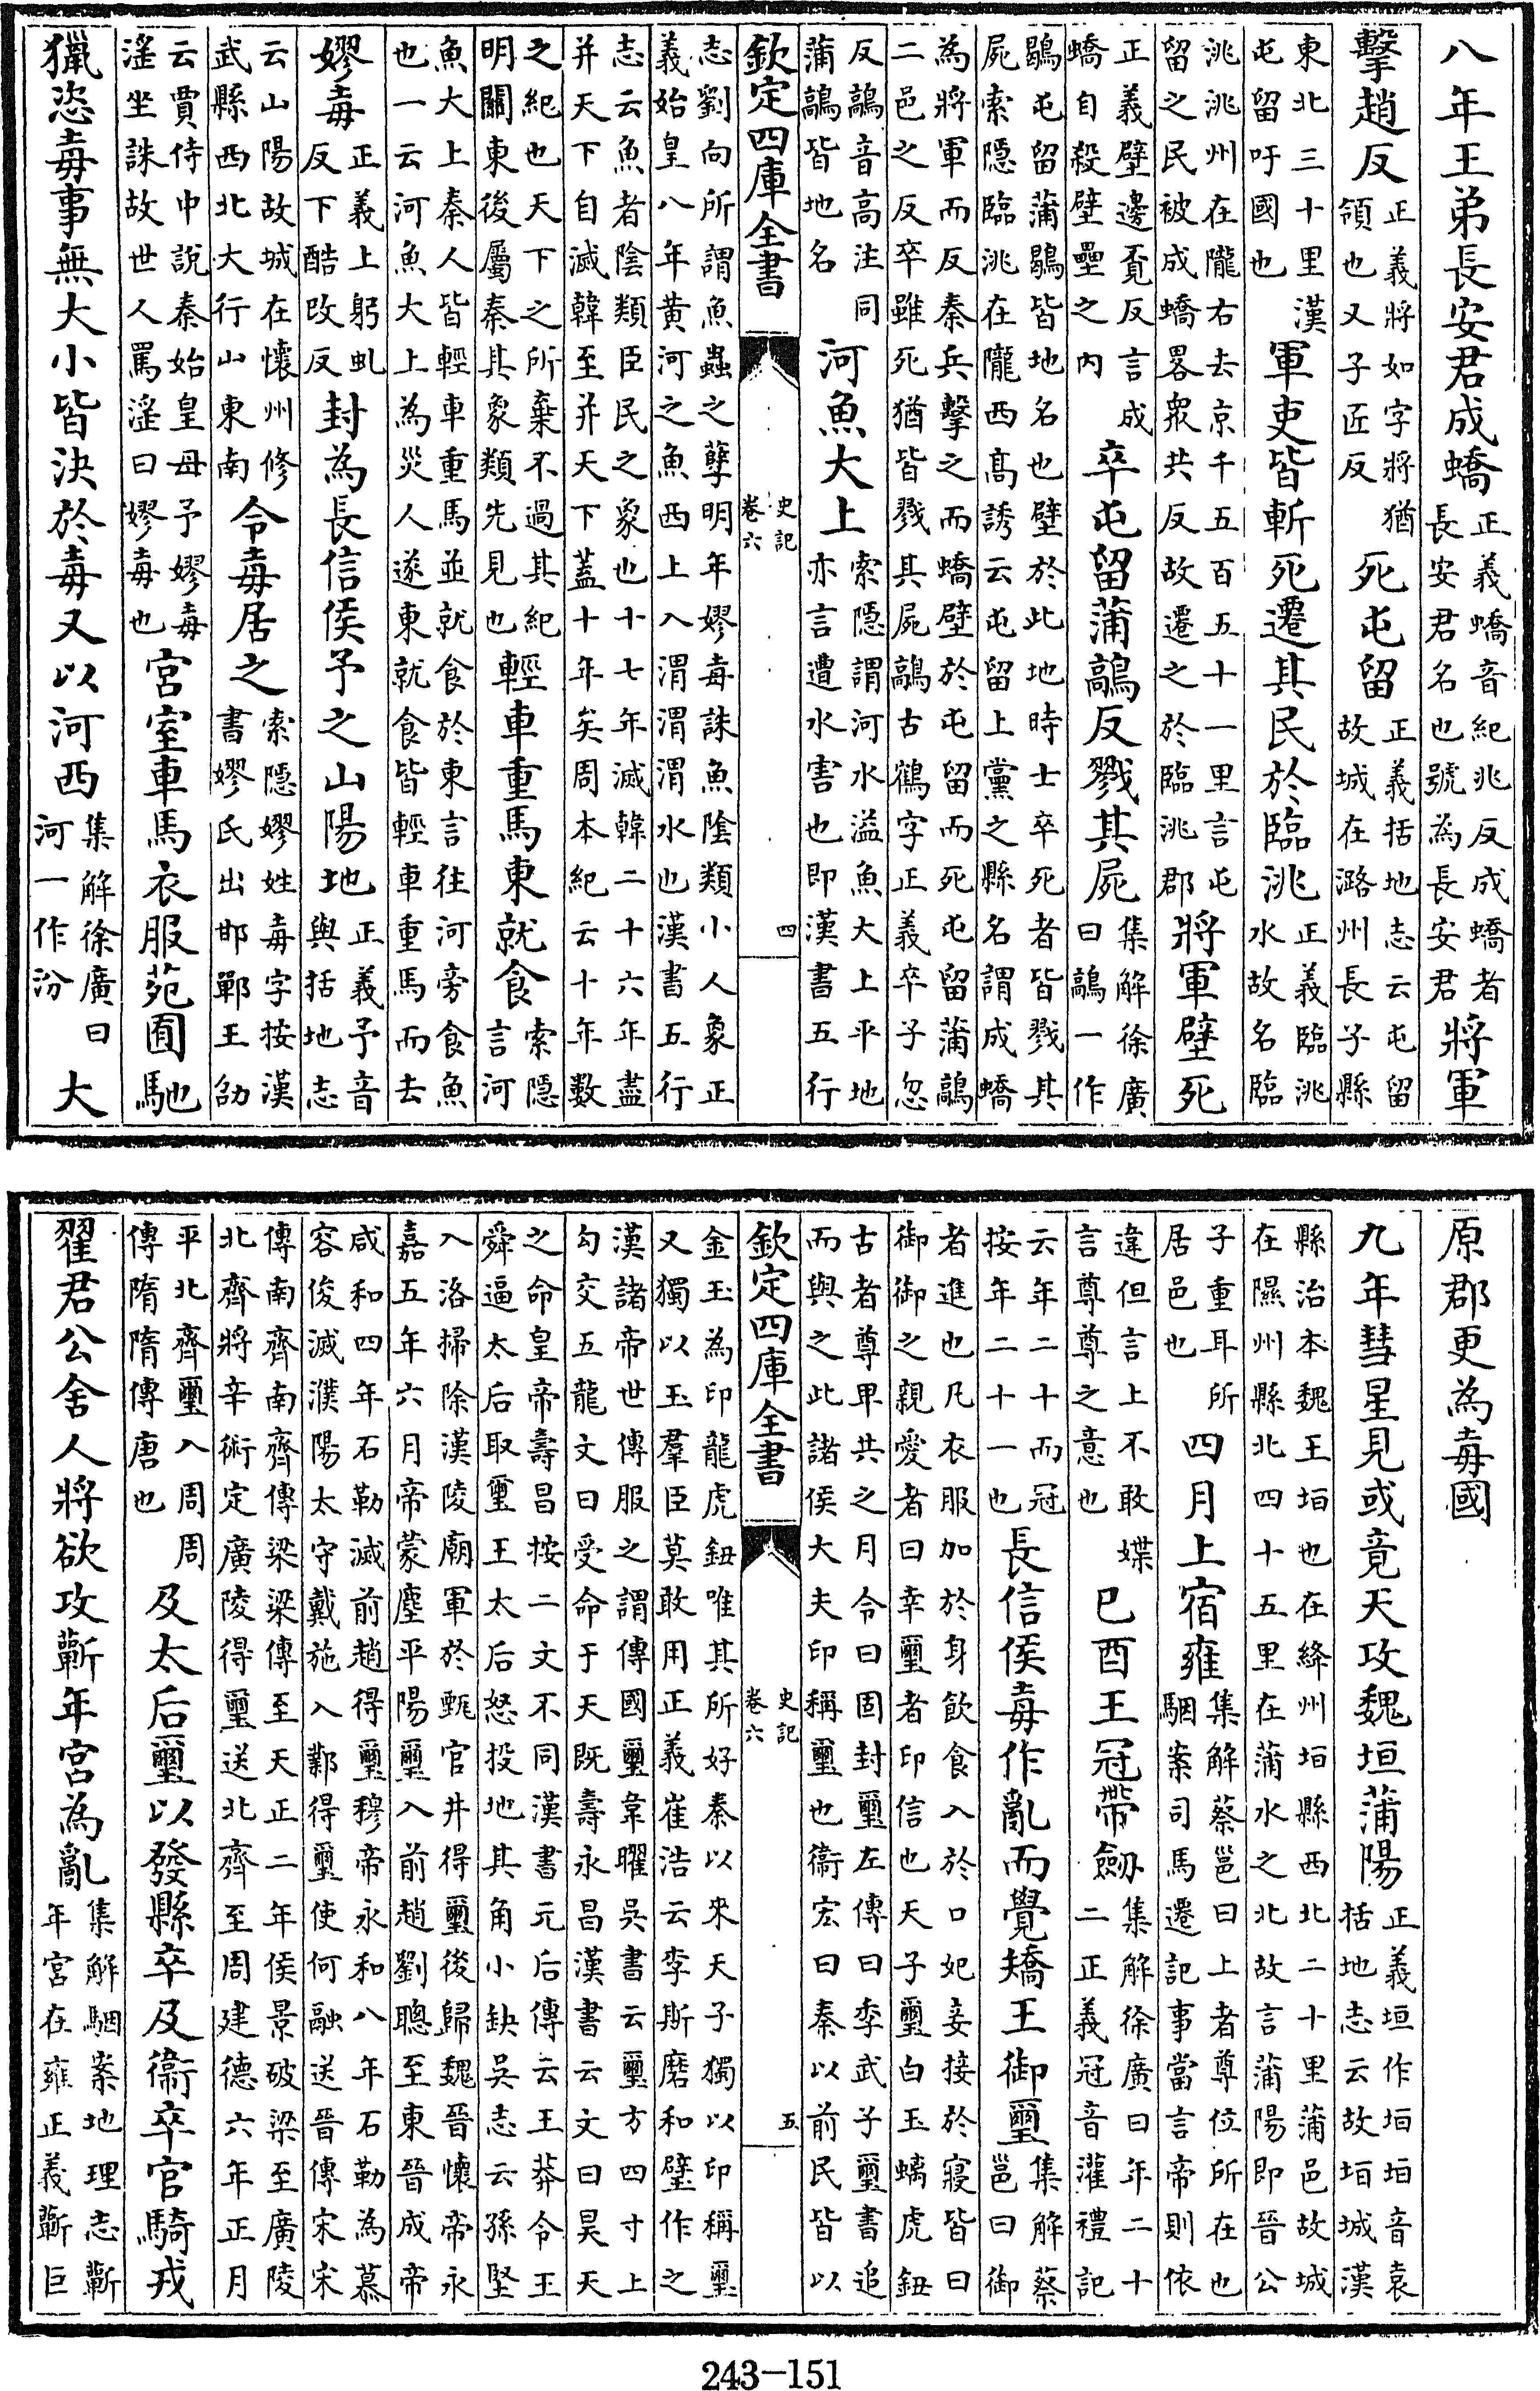 八年王弟長安君成蟜
正義蟜音紀兆反成蟜者
長安君名也號為長安君
將軍
擊趙反
正義將如字將猶
領也又子匠反
死屯留
正義括地志云屯留
故城在潞州長子縣
東北三十里漢
屯留吁國也
軍吏皆斬死遷其民於臨洮
正義臨洮
水故名臨
洮洮州在隴右去京千五百五十一里言屯
留之民被成蟜畧衆共反故遷之於臨洮郡
將軍壁死
正義壁邊覔反言成
蟜自殺壁壘之內
卒屯留蒲鶮反戮其屍
集解徐廣
曰鶮一作
鶡屯留蒲鶡皆地名也壁於此地時士卒死者皆戮其
屍索隱臨洮在隴西高誘云屯留上黨之縣名謂成蟜
為將軍而反秦兵擊之而蟜壁於屯留而死屯留蒲鶮
二邑之反卒雖死猶皆戮其屍鶮古鶴字正義卒子忽
反鶮音高注同
蒲鶮皆地名
河魚大上
索隱謂河水溢魚大上平地
亦言遭水害也即漢書五行
欽定四庫全書
史記
卷六
四
志劉向所謂魚蟲之孽明年嫪毐誅魚陰類小人象正
義始皇八年黃河之魚西上入渭渭渭水也漢書五行
志云魚者陰類臣民之象也十七年滅韓二十六年盡
并天下自滅韓至并天下蓋十年矣周本紀云十年數
之紀也天下之所棄不過其紀
明關東後屬秦其象類先見也
輕車重馬東就食
索隱
言河
魚大上秦人皆輕車重馬並就食於東言往河旁食魚
也一云河魚大上為災人遂東就食皆輕車重馬而去
嫪毐
正義上躬虬
反下酷改反
封為長信侯予之山陽地
正義予音
與括地志
云山陽故城在懷州修
武縣西北大行山東南
令毐居之
索隱嫪姓毐字按漢
書嫪氏出邯鄲王劭
云賈侍中說秦始皇母予嫪毐
淫坐誅故世人罵淫曰嫪毐也
宮室車馬衣服苑囿馳
獵恣毐事無大小皆決於毐又以河西
集解徐廣曰
河一作汾
大
原郡更為毐國
九年彗星見或竟天攻魏垣蒲陽
正義垣作垣垣音袁
括地志云故垣城漢
縣治本魏王垣也在絳州垣縣西北二十里蒲邑故城
在隰州縣北四十五里在蒲水之北故言蒲陽即晉公
子重耳所
居邑也
四月上宿雍
集解蔡邕曰上者尊位所在也
駰案司馬遷記事當言帝則依
違但言上不敢媟
言尊尊之意也
已酉王冠帶劔
集解徐廣曰年二十
二正義冠音灌禮記
云年二十而冠
按年二十一也
長信侯毐作亂而覺矯王御璽
集解蔡
邕曰御
者進也凡衣服加於身飲食入於口妃妾接於寢皆曰
御御之親愛者曰幸璽者印信也天子璽白玉螭虎鈕
古者尊卑共之月令曰固封璽左傳曰季武子璽書追
而與之此諸侯大夫印稱璽也衞宏曰秦以前民皆以
欽定四庫全書
史記
卷六
五
金玉為印龍虎鈕唯其所好秦以來天子獨以印稱璽
又獨以玉羣臣莫敢用正義崔浩云李斯磨和璧作之
漢諸帝世傳服之謂傳國璽韋曜吳書云璽方四寸上
勾交五龍文曰受命于天既壽永昌漢書云文曰昊天
之命皇帝壽昌按二文不同漢書元后傳云王莽令王
舜逼太后取璽王太后怒投地其角小缺吳志云孫堅
入洛掃除漢陵廟軍於甄官井得璽後歸魏晉懷帝永
嘉五年六月帝蒙塵平陽璽入前趙劉聰至東晉成帝
咸和四年石勒滅前趙得璽穆帝永和八年石勒為慕
容俊滅濮陽太守戴施入鄴得璽使何融送晉傳宋宋
傳南齊南齊傳梁梁傳至天正二年侯景破梁至廣陵
北齊將辛術定廣陵得璽送北齊至周建德六年正月
平北齊璽入周周
傳隋隋傳唐也
及太后璽以發縣卒及衞卒官騎戎
翟君公舍人將欲攻蘄年宮為亂
集解駰案地理志蘄
年宮在雍正義蘄巨
243-151